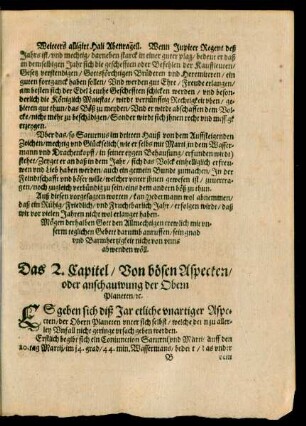 Weiters alligirt Hali Abenragel. Wenn Jupiter Regent deß
Jahrs ist / vnd mechtig / darneben starck in einer guter plag / bedeut er daß
in demselbigen Jahr sich die gescheffen oder Befehlen der Kauffleuten /
Gesetz verstendigen / Gottsförchtigen Brüderen vnd Heremiteren / ein
guten fortgang haben sollen / Vnd werden gut Ehre / Freude erlangen /
am besten sich der Edel
derlich die Königlich Maiestat / wieder vernünfftig Rechtigkeit vben / ge-
bieren gut thun / das Böß zu meiden. Vnd er wirdt sich dem wieder
cke / nicht mehr zu beschädigen / Sonder wirdt sich jhenen rechte vnd
erzeygen.
Vber das / so Saturnus im dritten Hauß von dem Auffsteigenden
Zeichen / mechtig vnd Glückselich (wie er selbs mit Mars in dem Wasser-
mann vnd Drachenkopff / in seiner eygen Behausung / erfunden wirdt)
stehet / Zeyget er an daß in dem Jahr / sich das Volck einhelliglich erfre-
wen vnd Lieb haben werden / auch ein gemein Bundt zumachen / In der
Feindtschafft vnd böser wille welcher wieder jhenen erwosen ist / zuvertra-
gen / noch zugleich verbündig zu sein / eins dem andern böß zu thun.
Auß diesen vorgesagten worten / kan Jedermann wol abnemmen /
daß ein Rühig / Friedlich / vnd Fruchtbarlich Jahr / erfolgen würde / daß
wir vor vielen Jahren nicht wol erlanget haben.
Mögen derhalben Gott den Allmechtigen trewlich mit vn-
serm teglichen Gebett darumb anruffen / sein gnad
vnd Barmhertzigkeit nicht von vnns
abwenden wöll.
Das 2. Capitel / Von bösen Aspecten /
oder anschauwung der Obern
Planeten / etc.
ES geben sich diß Jar etliche vnartiger Aspe-
cten / der Obern Planeten vnter sich selbst / welche den zu aller-
ley Vnfall nicht geringe vrsach geben werden.
Erstlich begibt sich ein Coniunction Saturni vnd Martis auff den
20. tag Martij / im 14. grad / 44. min. Wassermann / bedeut / das vnder
B